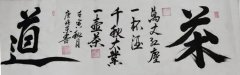 茶
萬丈紅塵
一杯酒
千秋大業
一壺茶
壬寅秋月
道